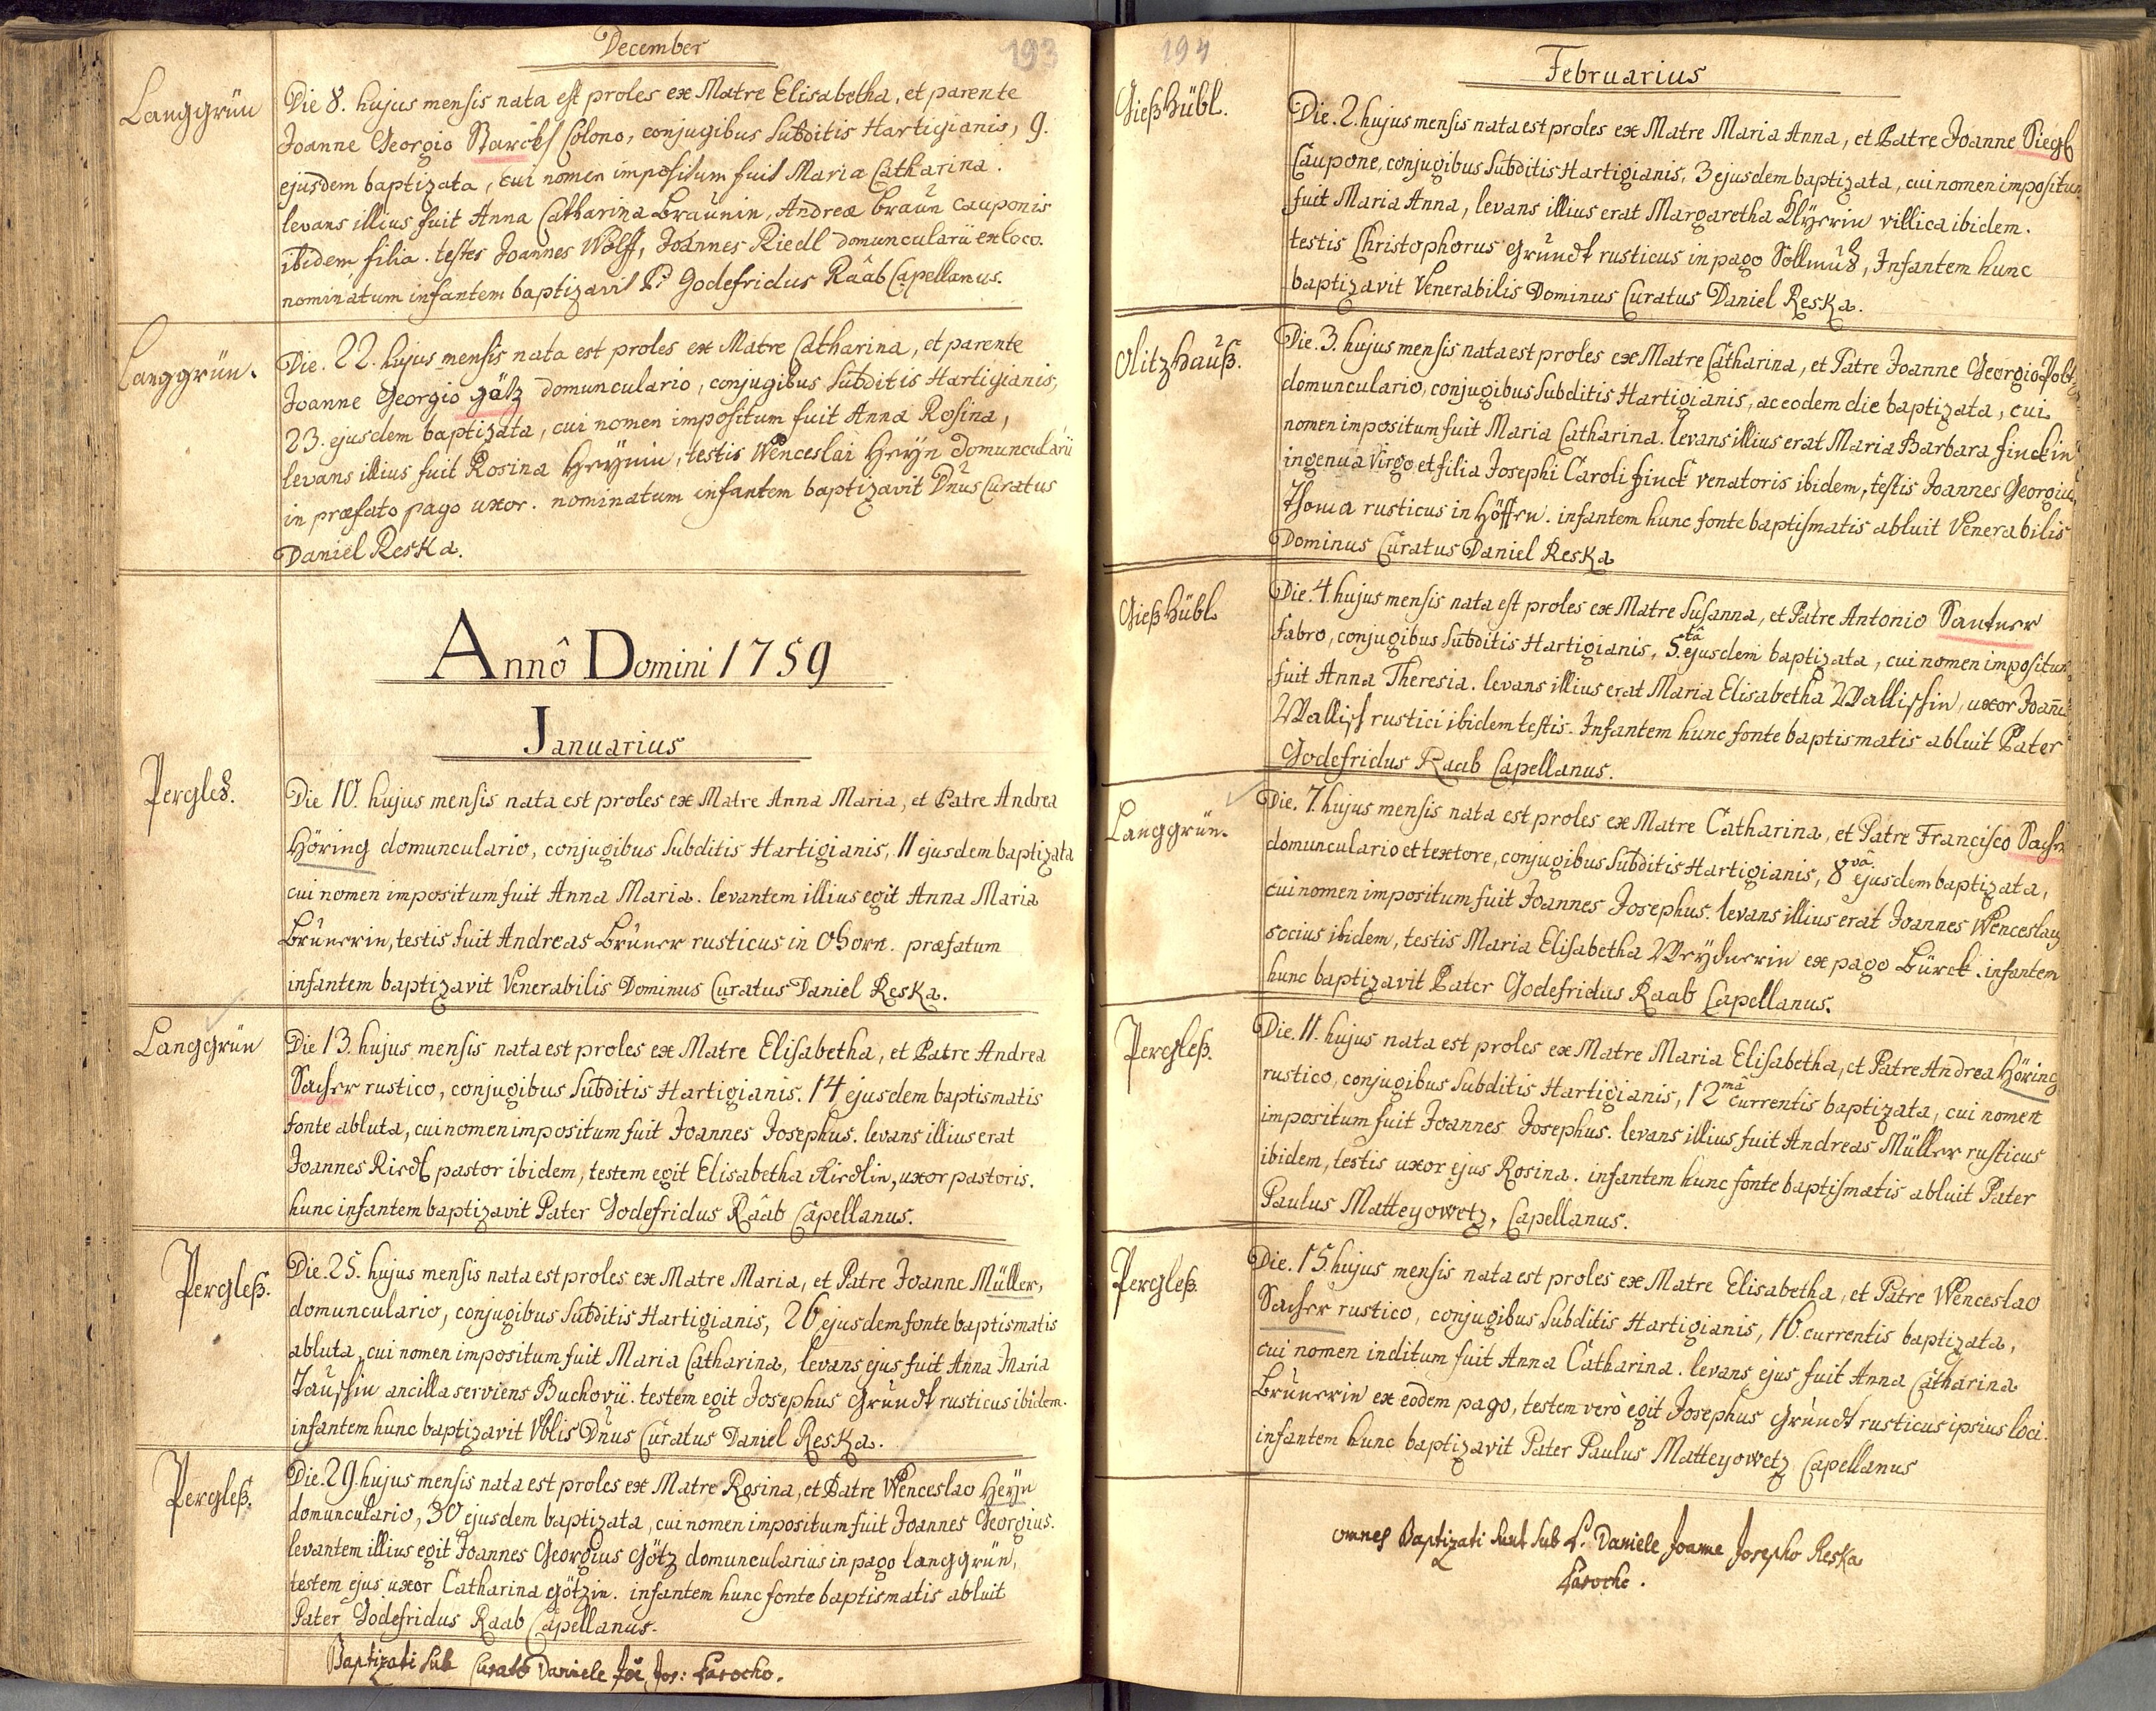 193
December
Langgrün
Die 8. hujus mensis nata est proles ex Matre Elisabetha, et parente
Joanne Georgio Colono, conjugibus Subditis Hartigianis, 9.
ejusdem baptizata, cui nomen impositum fuit Maria Catharina.
levans illius fuit Anna Catharina Braunin, Andreæ Braun cauponis
ibidem filia. testes Joannes Wolff, Joannes Riedl domuncularii ex loco.
nominatum infantem baptizavit P. Godefridus Râab Capellanus.
Langgrün.
Die. 22. hujus mensis nata est proles ex Matre Catharina, et parente
Joanne Georgio Götz domunculario, conjugibus Subditis Hartigianis,
23. ejusdem baptizata, cui nomen impositum fuit Anna Rosina,
levans illius fuit Rosina Heÿnin, testis Wenceslai Heÿn domuncularii
in præfato pago uxor. nominatum infantem baptizavit Dnus Curatus
Daniel Reska.
Annô Domini 1759
Januarius
Pergles.
Die 10. hujus mensis nata est proles ex Matre Anna Maria, et Patre Andrea
Höring domunculario, conjugibus Subditis Hartigianis, 11 ejusdem baptizata
cui nomen impositum fuit Anna Maria. levantem illius egit Anna Maria
Brunerin, testis fuit Andreas Bruner rusticus in Ohorn. præfatum
infantem baptizavit Venerabilis Dominus Curatus Daniel Reska.
Langgrün
Die 13. hujus mensis nata est proles ex Matre Elisabetha, et Patre Andrea
Sacher rustico, conjugibus Subditis Hartigianis. 14 ejusdem baptismatis
fonte abluta, cui nomen impositum fuit Joannes Josephus. levans illius erat
Joannes Riedl pastor ibidem, testem egit Elisabetha Riedlin, uxor pastoris.
hunc infantem baptizavit Pater Godefridus Râab Capellanus.
Pergleß.
Die. 25. hujus mensis nata est proles ex Matre Maria, et Patre Joanne Müller,
domunculario, conjugibus Subditis Hartigianis, 26 ejusdem fonte baptismatis
abluta, cui nomen impositum fuit Maria Catharina, levans ejus fuit Anna Maria
ancilla serviens Buchovii. testem egit Josephus Grundt rusticus ibidem.
infantem hunc baptizavit Vblis Dnus Curatus Daniel Reska.
Pergleß.
Die. 29. hujus mensis nata est proles ex Matre Rosina, et Patre Wenceslao Heÿn
domunculario, 30 ejusdem baptizata, cui nomen impositum fuit Joannes Georgius.
levantem illius egit Joannes Georgius Götz domuncularius in pago Langgrün,
testem ejus uxor Catharina Götzin. infantem hunc fonte baptismatis abluit
Pater Godefridus Raab Capellanus.
Baptizati sub Curato Daniele Joē Jos: Parocho.
194
Februarius
Gießhübl.
Die. 2. hujus mensis nata est proles ex Matre Maria Anna, et Patre Joanne Siegl
Caupone, conjugibus Subditis Hartigianis, 3 ejusdem baptizata, cui nomen impositum
fuit Maria Anna, levans illius erat Margaretha villica ibidem.
testis Christophorus Grundt rusticus in pago Sollmus, Infantem hunc
baptizavit Venerabilis Dominus Curatus Daniel Reska.
Olitzhauß.
Die. 3. hujus mensis nata est proles ex Matre Catharina, et Patre Joanne Georgio
domunculario, conjugibus Subditis Hartigianis, ac eodem die baptizata, cui
nomen impositum fuit Maria Catharina. levans illius erat Maria Barbara Finckin
ingenua Virgo, et filia Josephi Caroli Finck venatoris ibidem, testis Joannes Georgius
Thoma rusticus in Höffen. infantem hunc fonte baptismatis abluit Venerabilis
Dominus Curatus Daniel Reska
Gießhübl
Die. 4. hujus mensis nata est proles ex Matre Susanna, et Patre Antonio Santner
fabro, conjugibus Subditis Hartigianis, 5tâ ejusdem baptizata, cui nomen impositum
fuit Anna Theresia. levans illius erat Maria Elisabetha Wallissin, uxor Joannis
Walliss rustici ibidem testis. Infantem hunc fonte baptismatis abluit Pater
Godefridus Raab Capellanus.
Langgrün.
Die. 7. hujus mensis nata est proles ex Matre Catharina, et Patre Francisco Sacher
domunculario et textore, conjugibus Subditis Hartigianis, 8vâ ejusdem baptizata,
cui nomen impositum fuit Joannes Josephus. levans illius erat Joannes Wenceslaus
socius ibidem, testis Maria Elisabetha ex pago Bürck. infantem
hunc baptizavit Pater Godefridus Raab Capellanus.
Pergleß.
Die. 11. hujus nata est proles ex Matre Maria Elisabetha, et Patre Andrea Höring
rustico, conjugibus Subditis Hartigianis, 12mâ currentis baptizata, cui nomen
impositum fuit Joannes Josephus. levans illius fuit Andreas Müller rusticus
ibidem, testis uxor ejus Rosina. infantem hunc fonte baptismatis abluit Pater
Paulus Matteyowetz, Capellanus.
Pergleß.
Die. 15. hujus mensis nata est proles ex Matre Elisabetha, et Patre Wenceslao
Sacher rustico, conjugibus Subditis Hartigianis, 16. currentis baptizata,
cui nomen inditum fuit Anna Catharina. levans ejus fuit Anna Catharina
Brunerin ex eodem pago, testem verò egit Josephus Grundt rusticus ipsius loci.
infantem hunc baptizavit Pater Paulus Matteyowetz Capellanus
omnes Baptizati sunt sub P. Daniele Joanne Josepho Reska
Parocho.